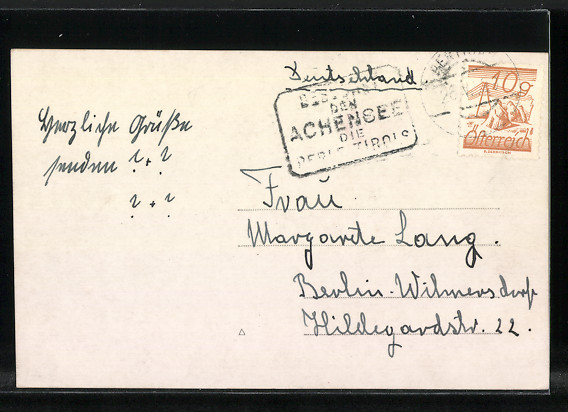 Deutschland
DEN
ACHENSEE
DIE
PERLE TIROLS
10g
Österreich
Herzliche Grüße
senden ? + ?
? + ?
Frau
Margarete Lang.
Berlin-Wilmersdorf
Hildegardstr. 22.